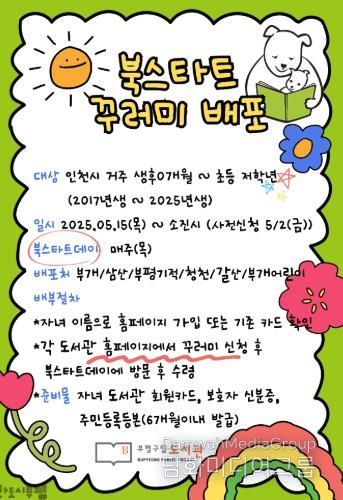 북스타트
꾸러미 배포
대상 인천시 거주 생후0개월 ~ 초등 저학년
(2017년생 ~ 2025년생)
일시 2025.05.15(목) ~ 소진시 (사전신청 5/2(금))
북스타트데이 매주(목)
배포처 부개/삼산/부평기적/청천/갈산/부개어린이
배부절차
*자녀 이름으로 홈페이지 가입 또는 기존 카드 확인
*각 도서관 홈페이지에서 꾸러미 신청 후
북스타트데이에 방문 후 수령
*준비물 자녀 도서관 회원카드, 보호자 신분증,
주민등록등본(6개월이내 발급)
B 부평구립도서관
BUPYEONG PUBLIC LIBRARY
DamwahMediaGroup
담화미디어그룹